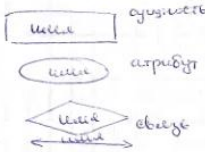 сущность
имя
имя атрибут
имя связь
имя